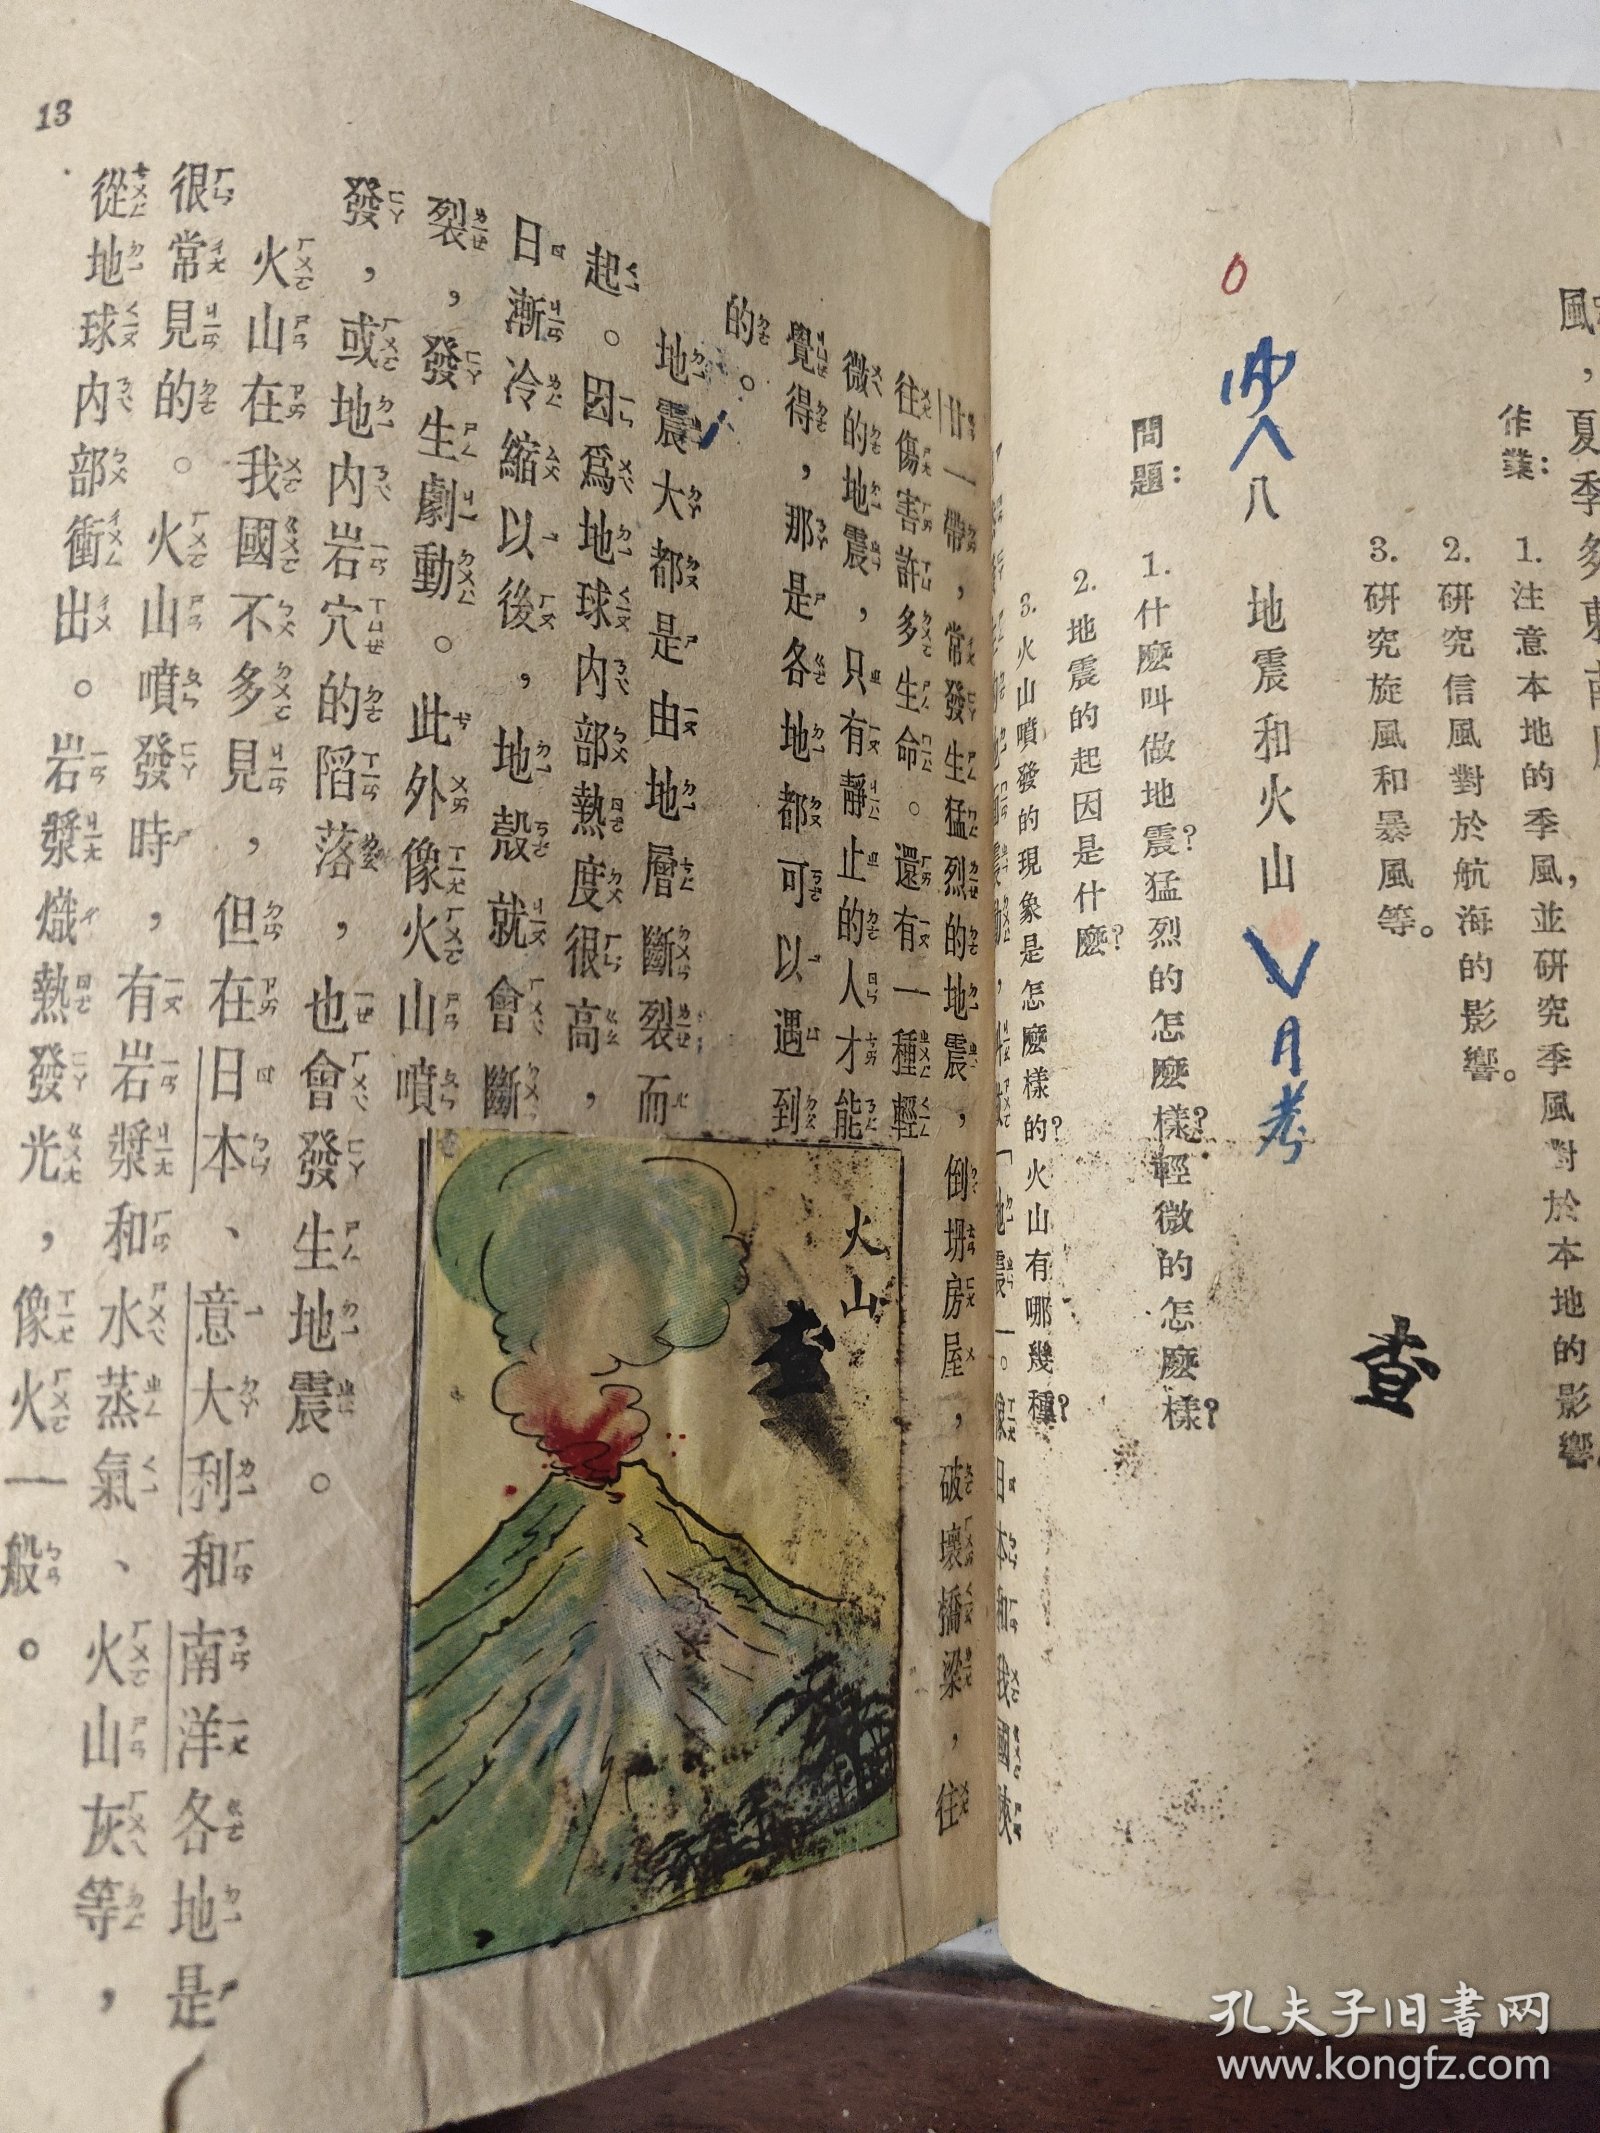 風，夏季多東南風
作業：
1. 注意本地的季風，並研究季風對於本地的影響。
2. 研究信風對於航海的影響。
3. 研究旋風和暴風等。
八　地震和火山
月考
查
問題：
1. 什麼叫做地震？猛烈的怎麼樣？輕微的怎麼樣？
2. 地震的起因是什麼？
3. 火山噴發的現象是怎麼樣的？火山有哪幾種？
「地震」。像日本和我國陝
甘一帶，常發生猛烈的地震，倒坍房屋，破壞橋梁，往
往傷害許多生命。還有一種輕
微的地震，只有靜止的人才能
覺得，那是各地都可以遇到
的。
地震大都是由地層斷裂而
起。因爲地球內部熱度很高，
日漸冷縮以後，地殼就會斷
裂，發生劇動。此外像火山噴
發，或地內岩穴的陷落，也會發生地震。
火山在我國不多見，但在日本、意大利和南洋各地是
很常見的。火山噴發時，有岩漿和水蒸氣、火山灰等，
從地球內部衝出。岩漿熾熱發光，像火一般。
13
火山
查
孔夫子旧書网
www.kongfz.com